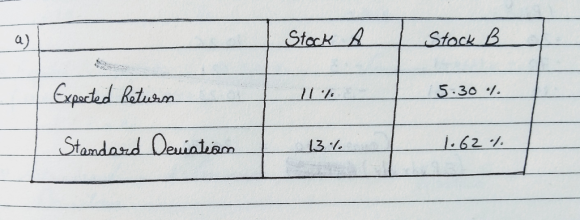 a) Stock A Stock B
Expected Return 11 % 5.30 %
Standard Deviation 13 % 1.62 %